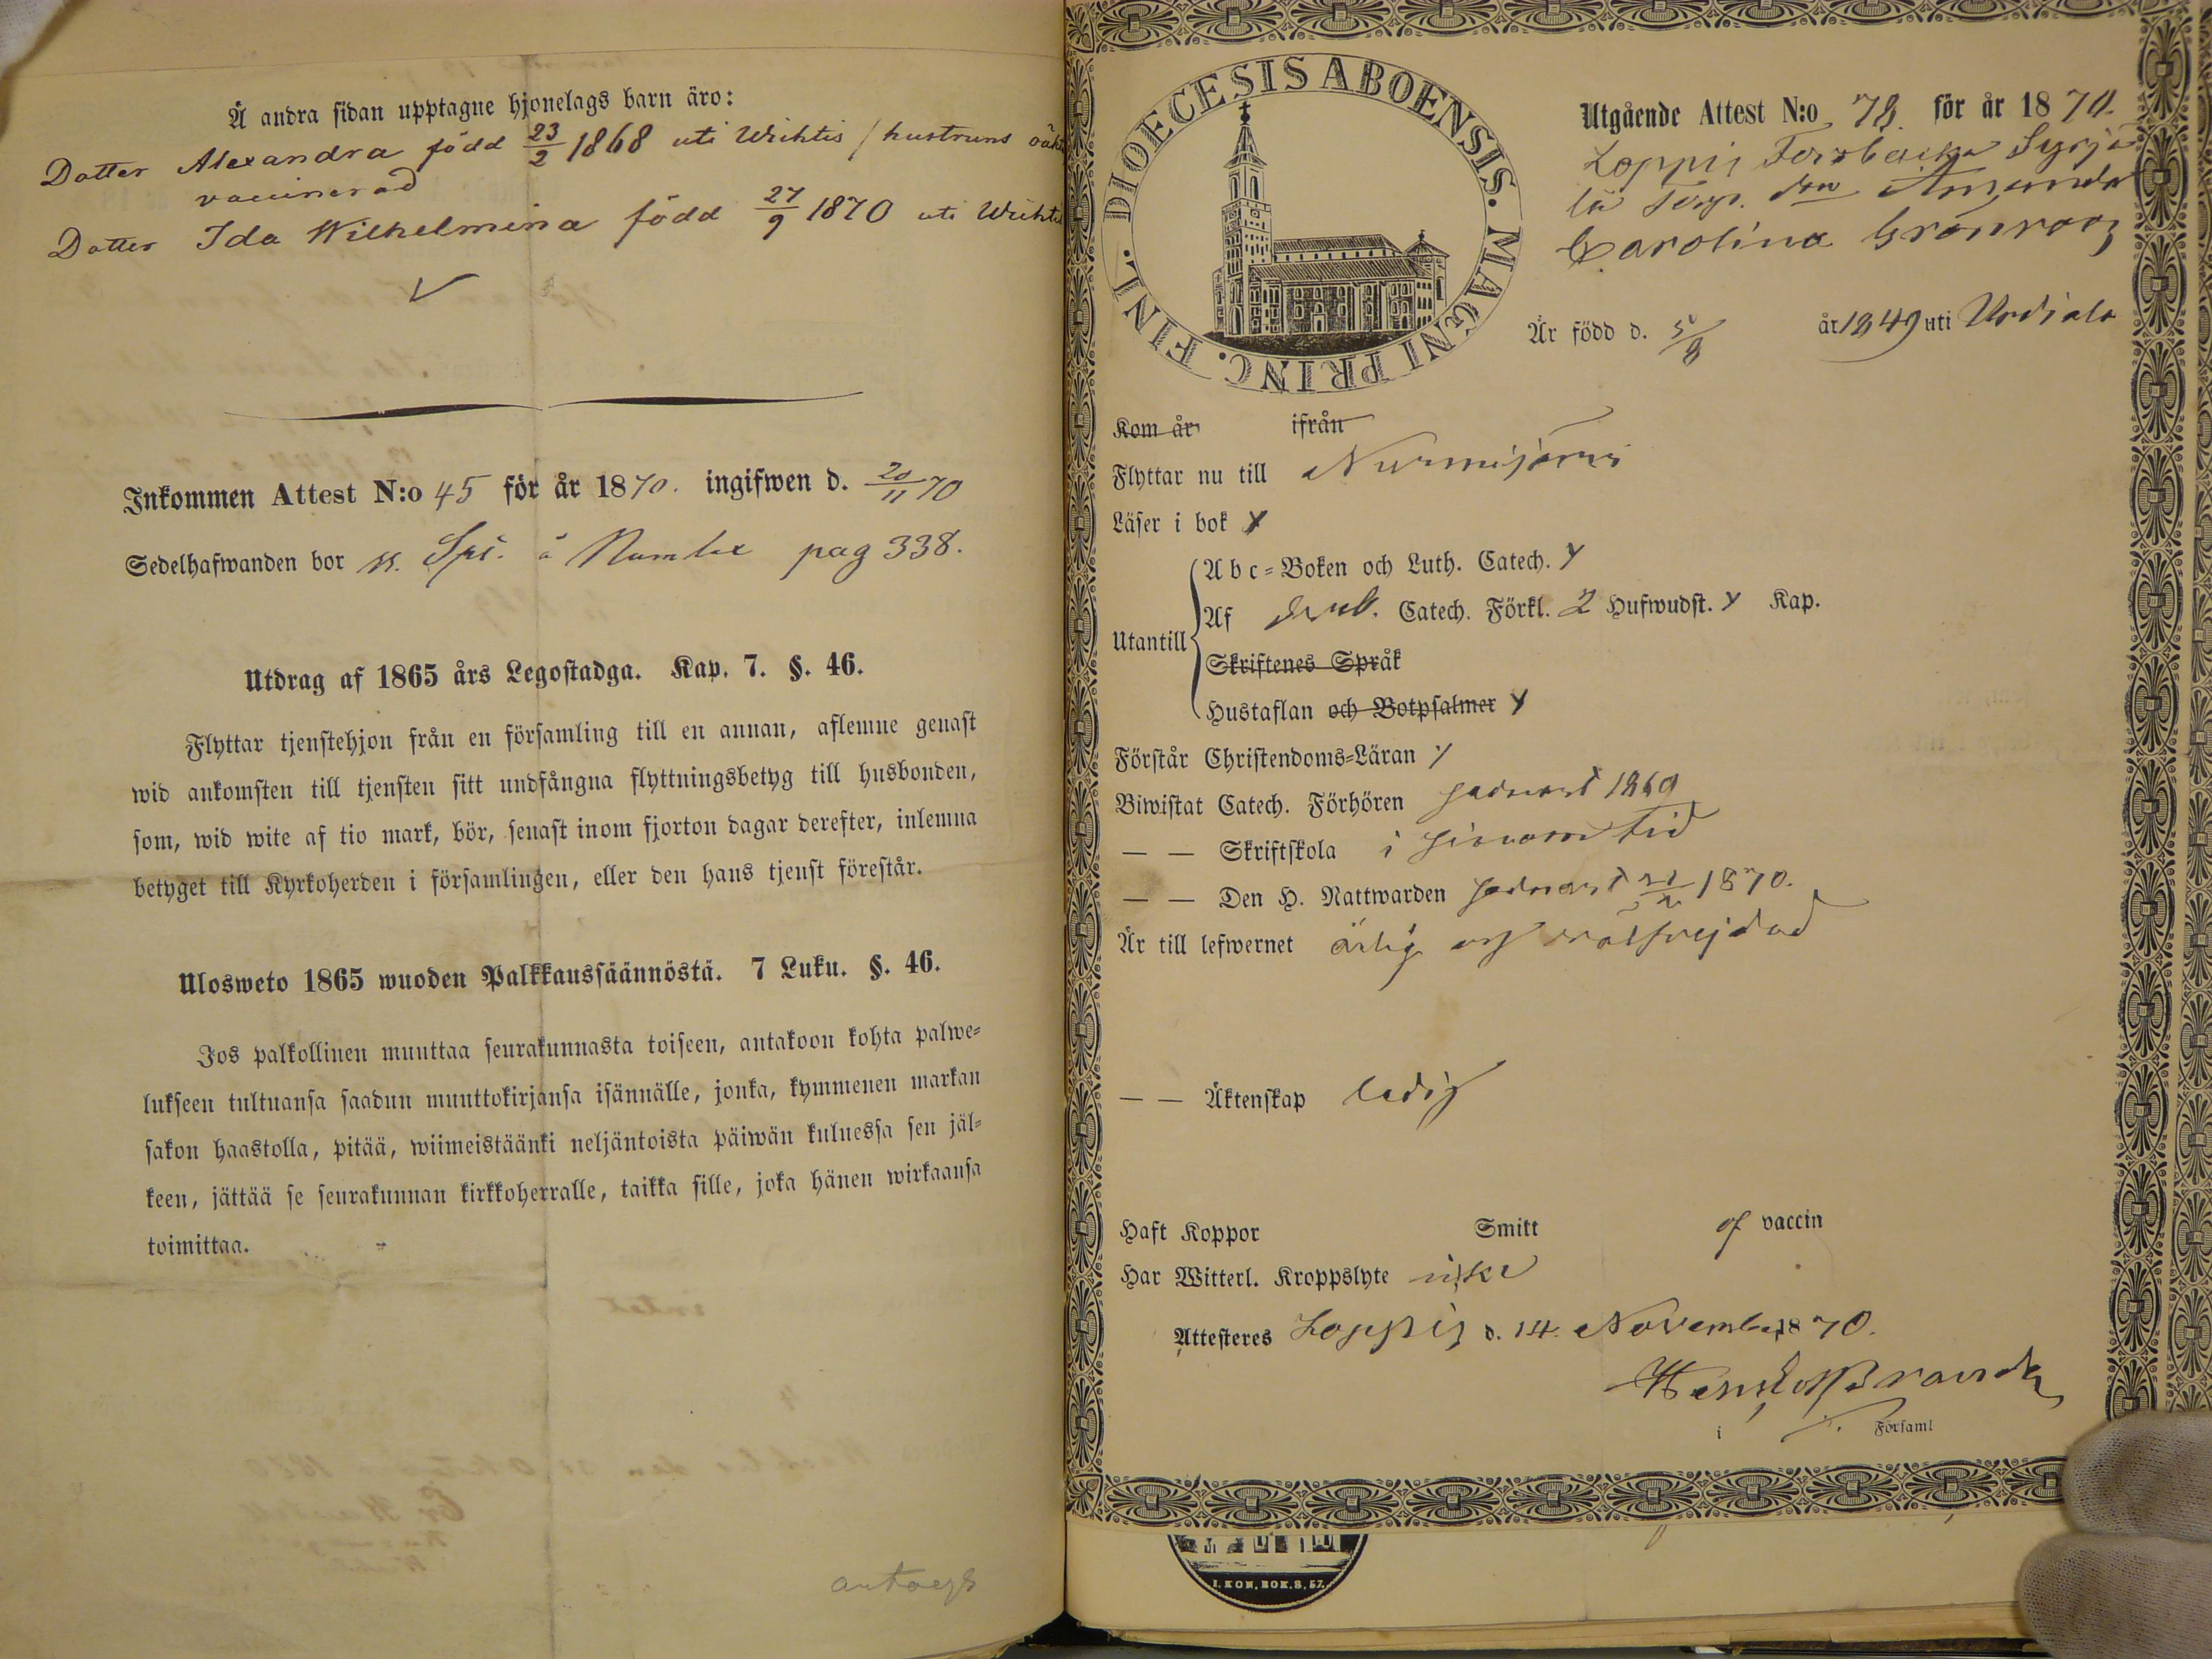 Å andra sidan upptagne hjonelags barn äro:
Dotter Alexandra född 23/2 1868 uti Wichtis / hustruns oäkt
vaccinerad
Dotter Ida Wilhelmina född 27/9 1870 uti Wichtis
Inkommen Attest N:o 45 för år 1870. ingifwen d. 20/11 70
Sedelhafwanden bor å Numlax pag 338.
Utdrag af 1865 års Legostadga. Kap. 7. §. 46.
Flyttar tjenstehjon från en församling till en annan, aflemne genast
wid ankomsten till tjensten sitt undfångna flyttningsbetyg till husbonden,
som, wid wite af tio mark, bör, senast inom fjorton dagar derefter, inlemna
betyget till Kyrkoherden i församlingen, eller den hans tjenst förestår.
Ulosweto 1865 wuoden Palkkaussäännöstä. 7 Luku. §. 46.
Jos palkollinen muuttaa seurakunnasta toiseen, antakoon kohta palwe-
lukseen tultuansa saadun muuttokirjansa isännälle, jonka, kymmenen markan
sakon haastolla, pitää, wiimeistäänki neljäntoista päiwän kuluessa sen jäl-
keen, jättää se seurakunnan kirkkoherralle, taikka sille, joka hänen wirkaansa
toimittaa.
DIOECESIS ABOENSIS. MAGNI PRINC. FINL.
Utgående Attest N:o 78. för år 1870.
Loppis Forsbacka Syrjä
Torp. d:n Amanda
Carolina Grönroos
Är född d. 5/8 år 1849 uti Urdiala
Kom år ifrån
Flyttar nu till Nurmijärvi
Läser i bok x
Utantill
Abc-Boken och Luth. Catech. y
Af Catech. Förkl. 2 Hufwudst. y Kap.
Skriftenes Språk
Hustaflan och Botpsalmer y
Förstår Christendoms-Läran y
Biwistat Catech. Förhören senast 1869
— — Skriftskola i sinom tid
— — Den H. Nattwarden senast 1870.
Är till lefwernet ärlig och wälfrejdad
— — Äktenskap ledig
Haft Koppor Smitt af vaccin
Har Witterl. Kroppslyte icke
Attesteres Loppis d. 14. November 1870.
i Församl
I. KON. BOK. 8. 57.